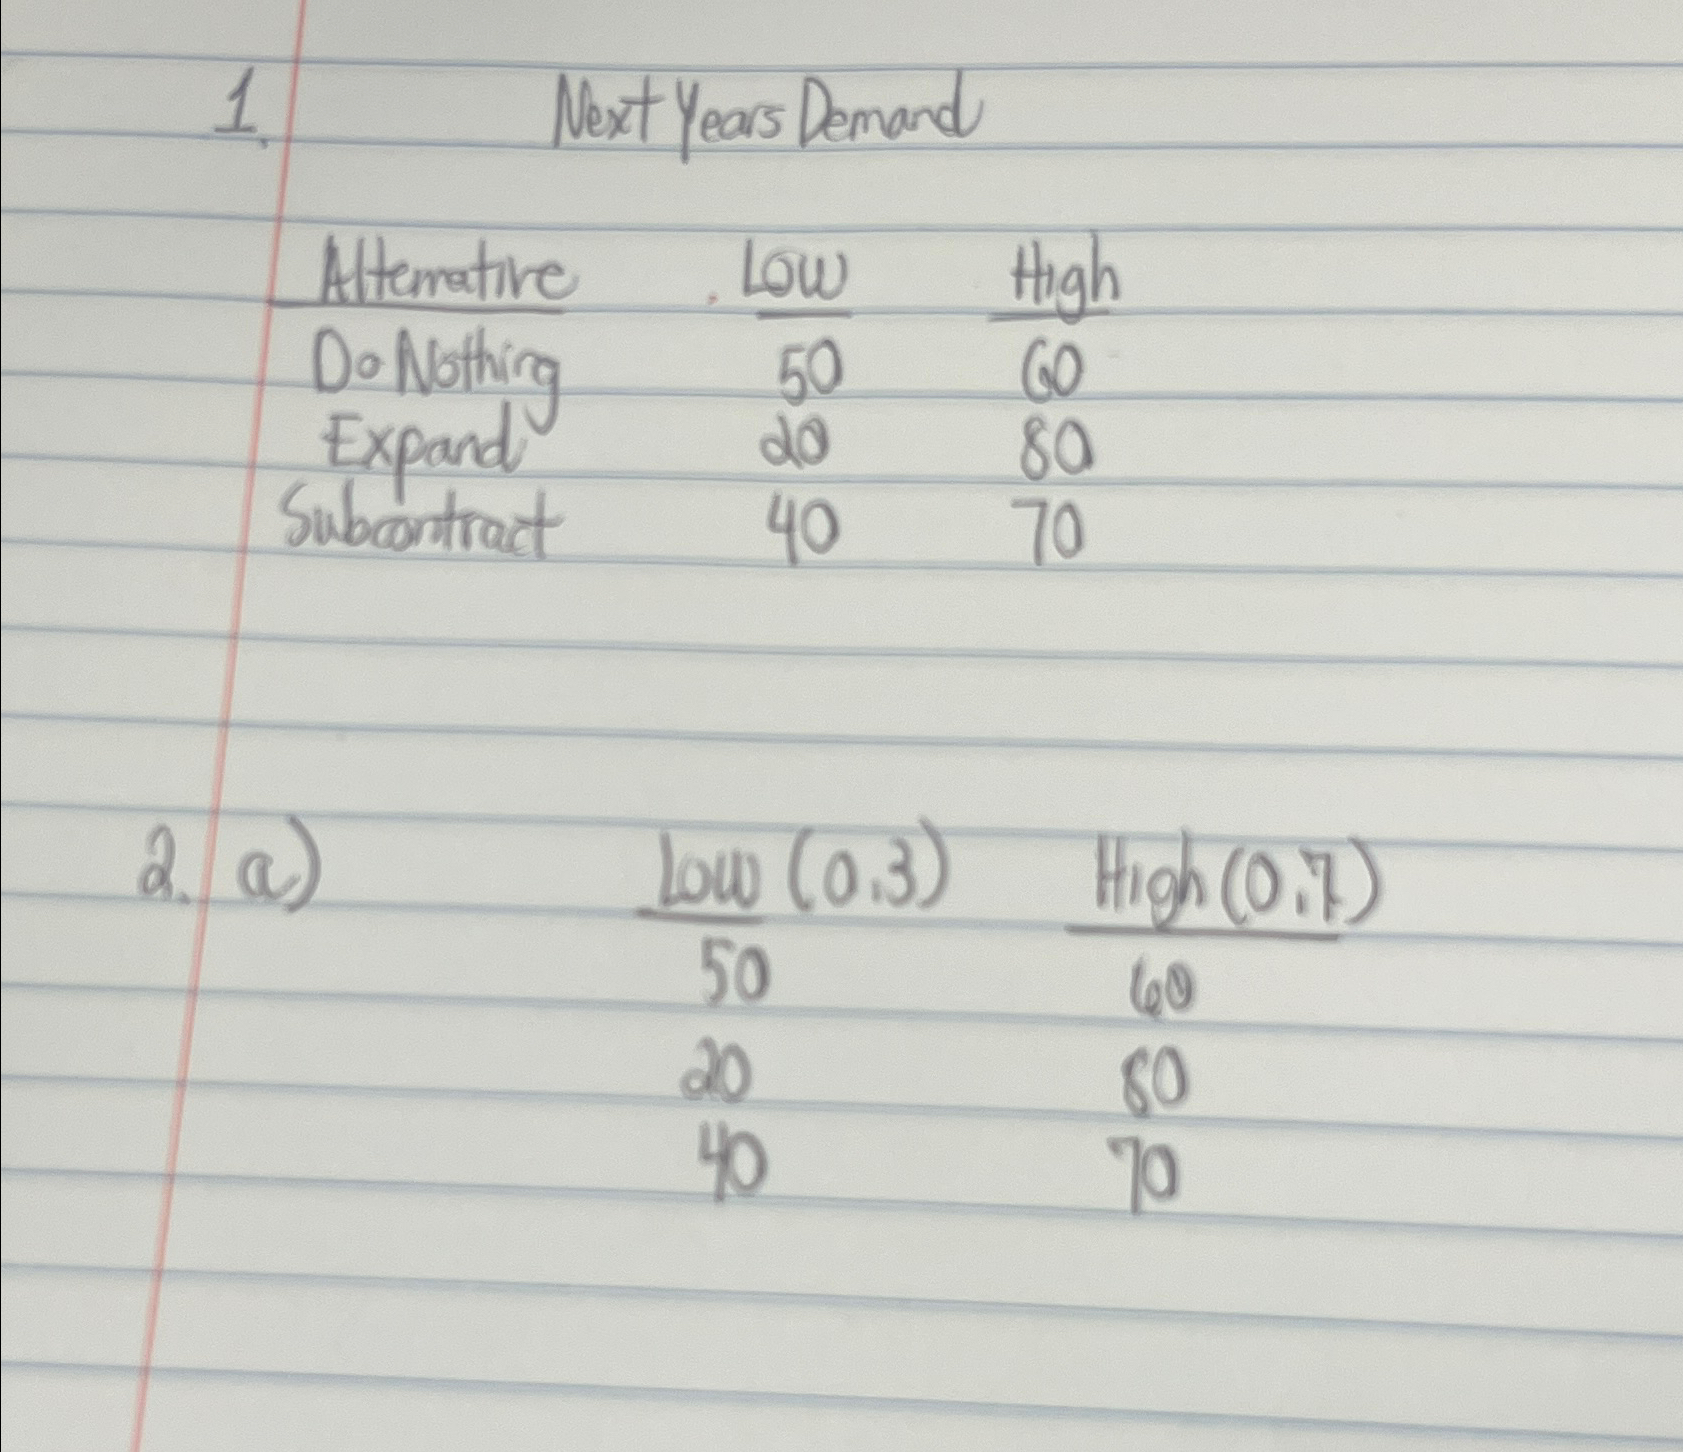 1. Next Years Demand
Alternative Low High
Do Nothing 50 60
Expand 20 80
Subcontract 40 70
2. a) Low (0.3) High (0.7)
50 60
20 80
40 70